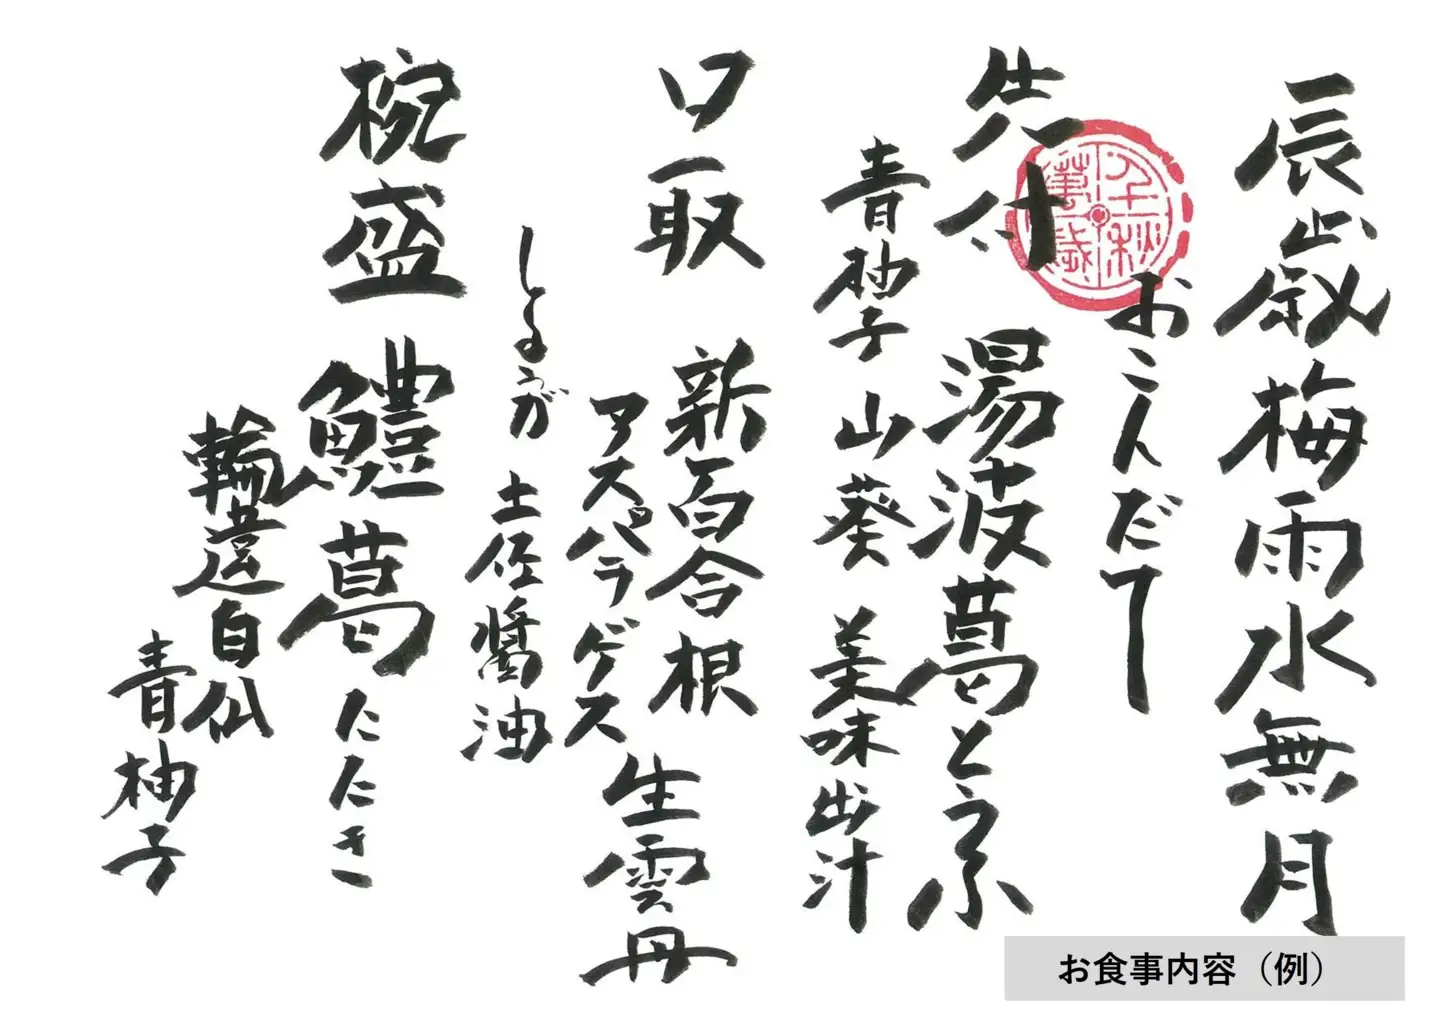 辰歳梅雨水無月
おこんだて
先付 湯波葛とうふ
青柚子 山葵 美味出汁
口取 新百合根
アスパラゲス 生雲丹
しょうが 土佐醤油
椀盛 鱧葛たたき
輪違 白仙
青柚子
千秋萬歳
お食事内容（例）